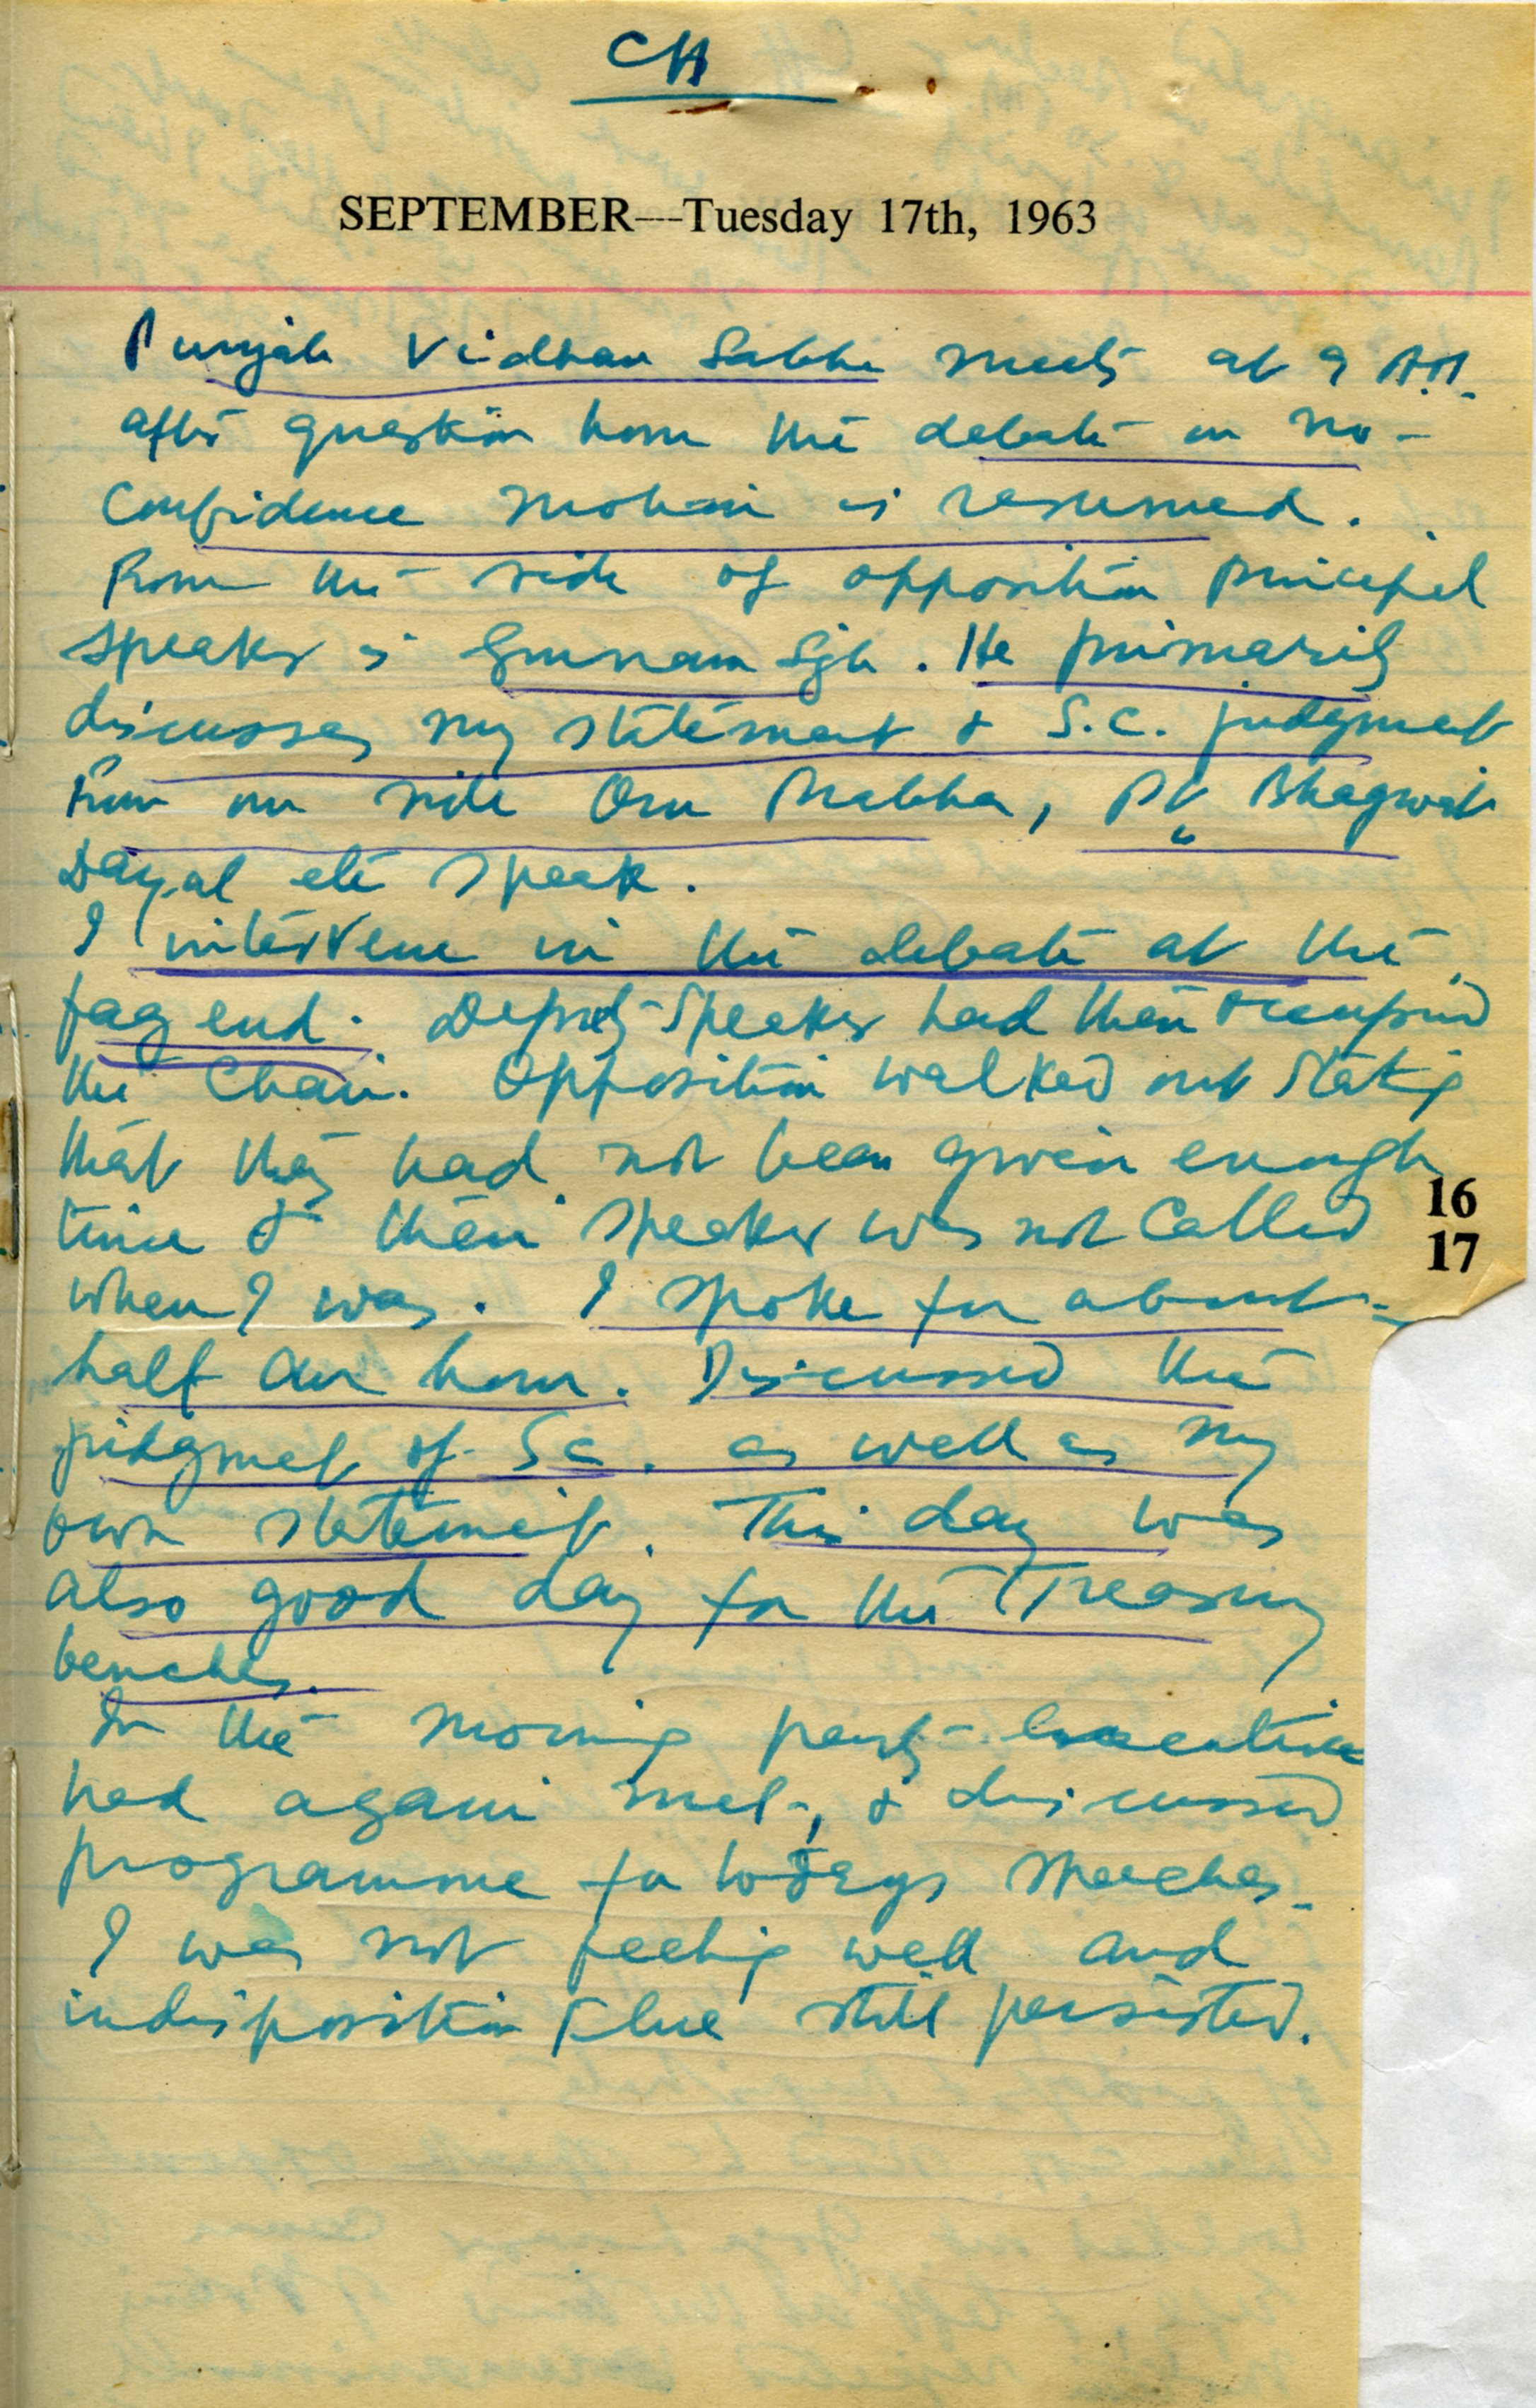 CH
SEPTEMBER—Tuesday 17th, 1963
Punjab Vidhan Sabha meets at 9 A.M.
after question hour the debate on no-
confidence motion is resumed.
From the side of opposition principal
speaker is Gurnam Sgh. He primarily
discusses my statement & S.C. judgment
From our side Om Prabha, Pt Bhagwat
Dayal etc speak.
I intervene in the debate at the
fag end. Deputy Speaker had then occupied
the Chair. Opposition walked out stating
that they had not been given enough
time & their speaker was not called
when I was. I spoke for about
half an hour. Discussed the
judgment of S.C. as well as my
own statement. This day was
also good day for the Treasury
benches.
In the morning party executive
had again met, & discussed
programme for todays speeches.
I was not feeling well and
indisposition flue still persisted.
16
17